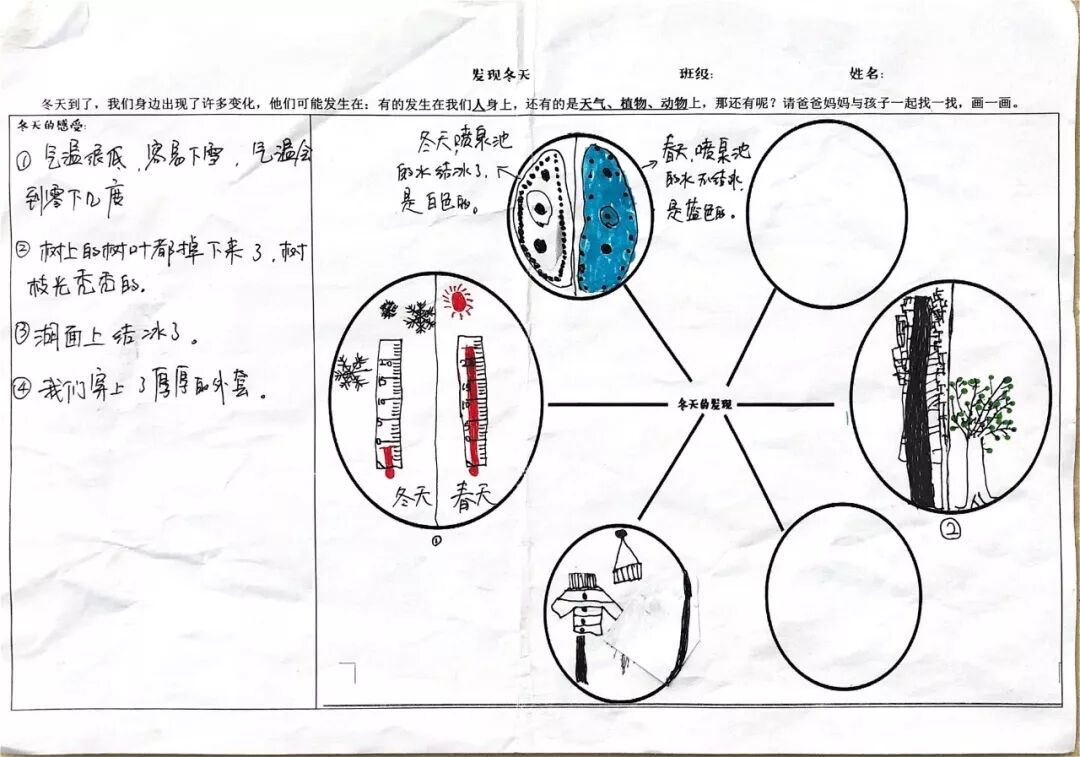 发现冬天 班级: 姓名:
冬天到了，我们身边出现了许多变化，他们可能发生在：有的发生在我们人身上，还有的是天气、植物、动物上，那还有呢？请爸爸妈妈与孩子一起找一找，画一画。
冬天的感受:
① 气温很低，容易下雪，气温会
到零下几度
② 树上的树叶都掉下来了，树
枝光秃秃的。
③ 湖面上结冰了。
④ 我们穿上了厚厚的外套。
冬天，喷泉池
的水结冰了，
是白色的。
春天，喷泉池
的水不结冰，
是蓝色的。
冬天的发现
冬天 春天
①
②